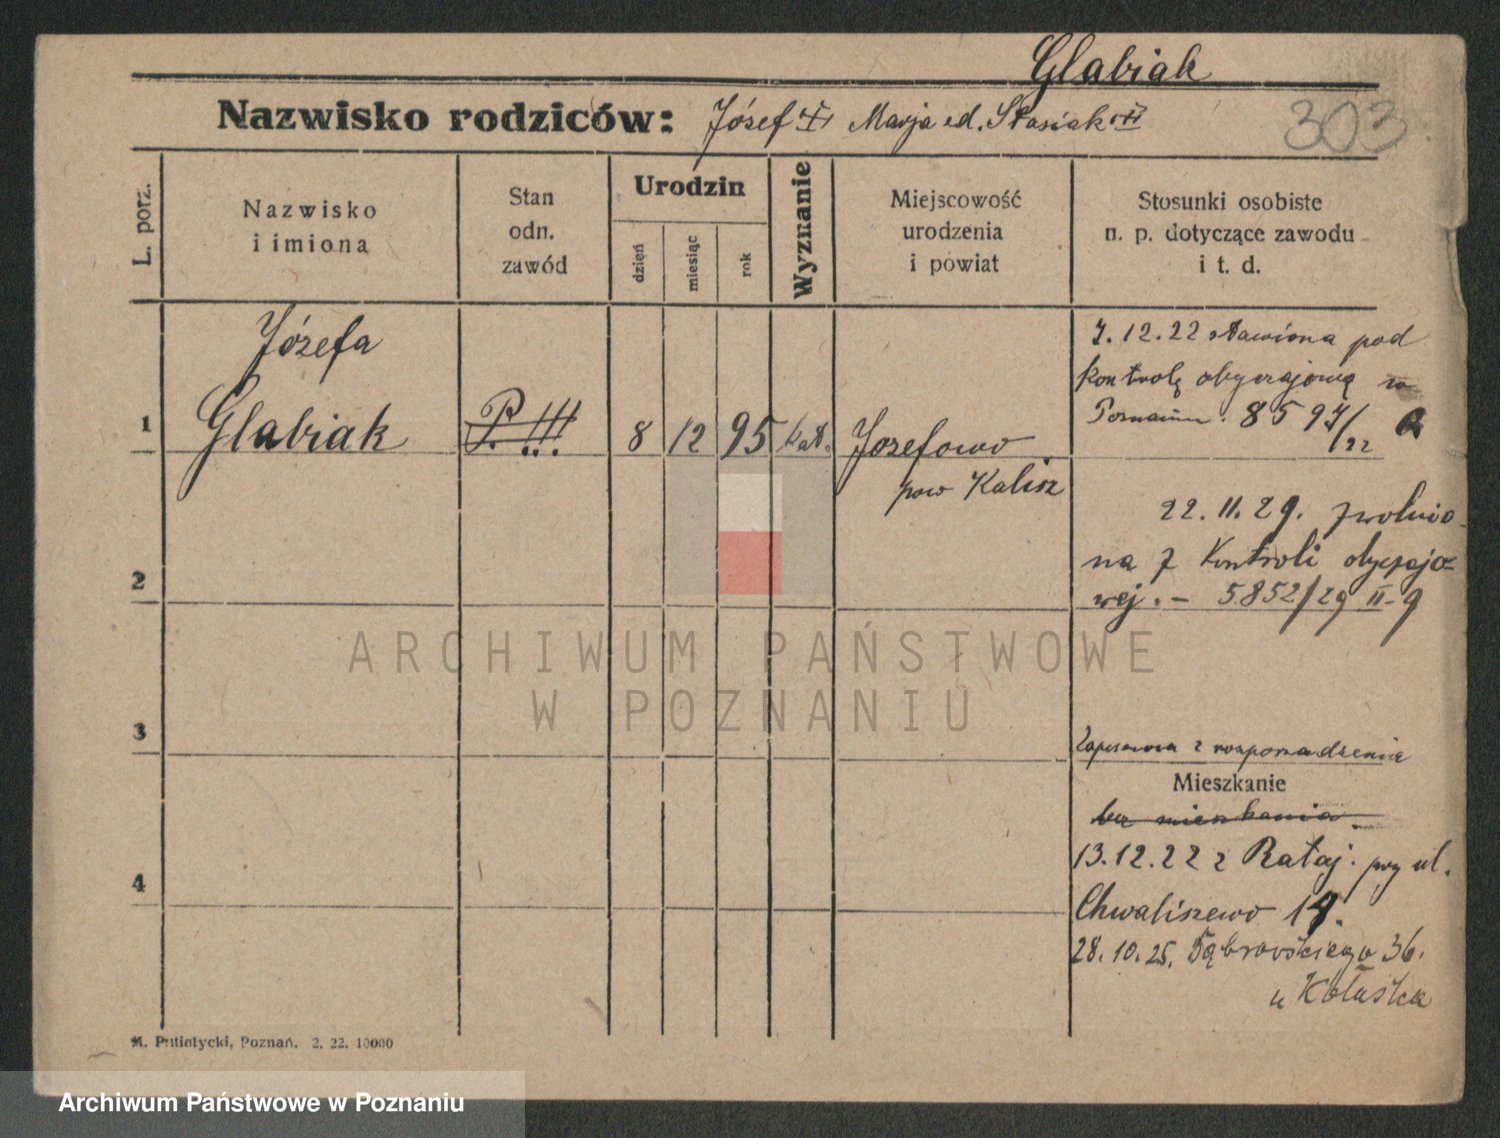 Glabiak
Nazwisko rodziców: Józef Marja
303
L. porz.
Nazwisko
i imiona
Stan
odn.
zawód
Urodzin
dzień
miesiąc
rok
Wyznanie
Miejscowość
urodzenia
i powiat
Stosunki osobiste
n. p. dotyczące zawodu
i t. d.
Józefa
1 Glabiak P. !!! 8 12 95 kat. Jozefowo
pow Kalisz
7.12.22 stawiona pod
kontrolę obyczajową w
Poznaniu. 8597/22
22. 11. 29. zwolnio-
na z Kontroli obyczajo-
wej. - 5852/29 II-9
2
3
z rozporządzenia
Mieszkanie
bez mieszkania
13.12.22 z Rataj. przy ul.
Chwaliszewo 14.
28.10.25. Dąbrowskiego 36.
u
4
M. Putiatycki, Poznań. 2. 22. 10000
ARCHIWUM PAŃSTWOWE
W POZNANIU
Archiwum Państwowe w Poznaniu